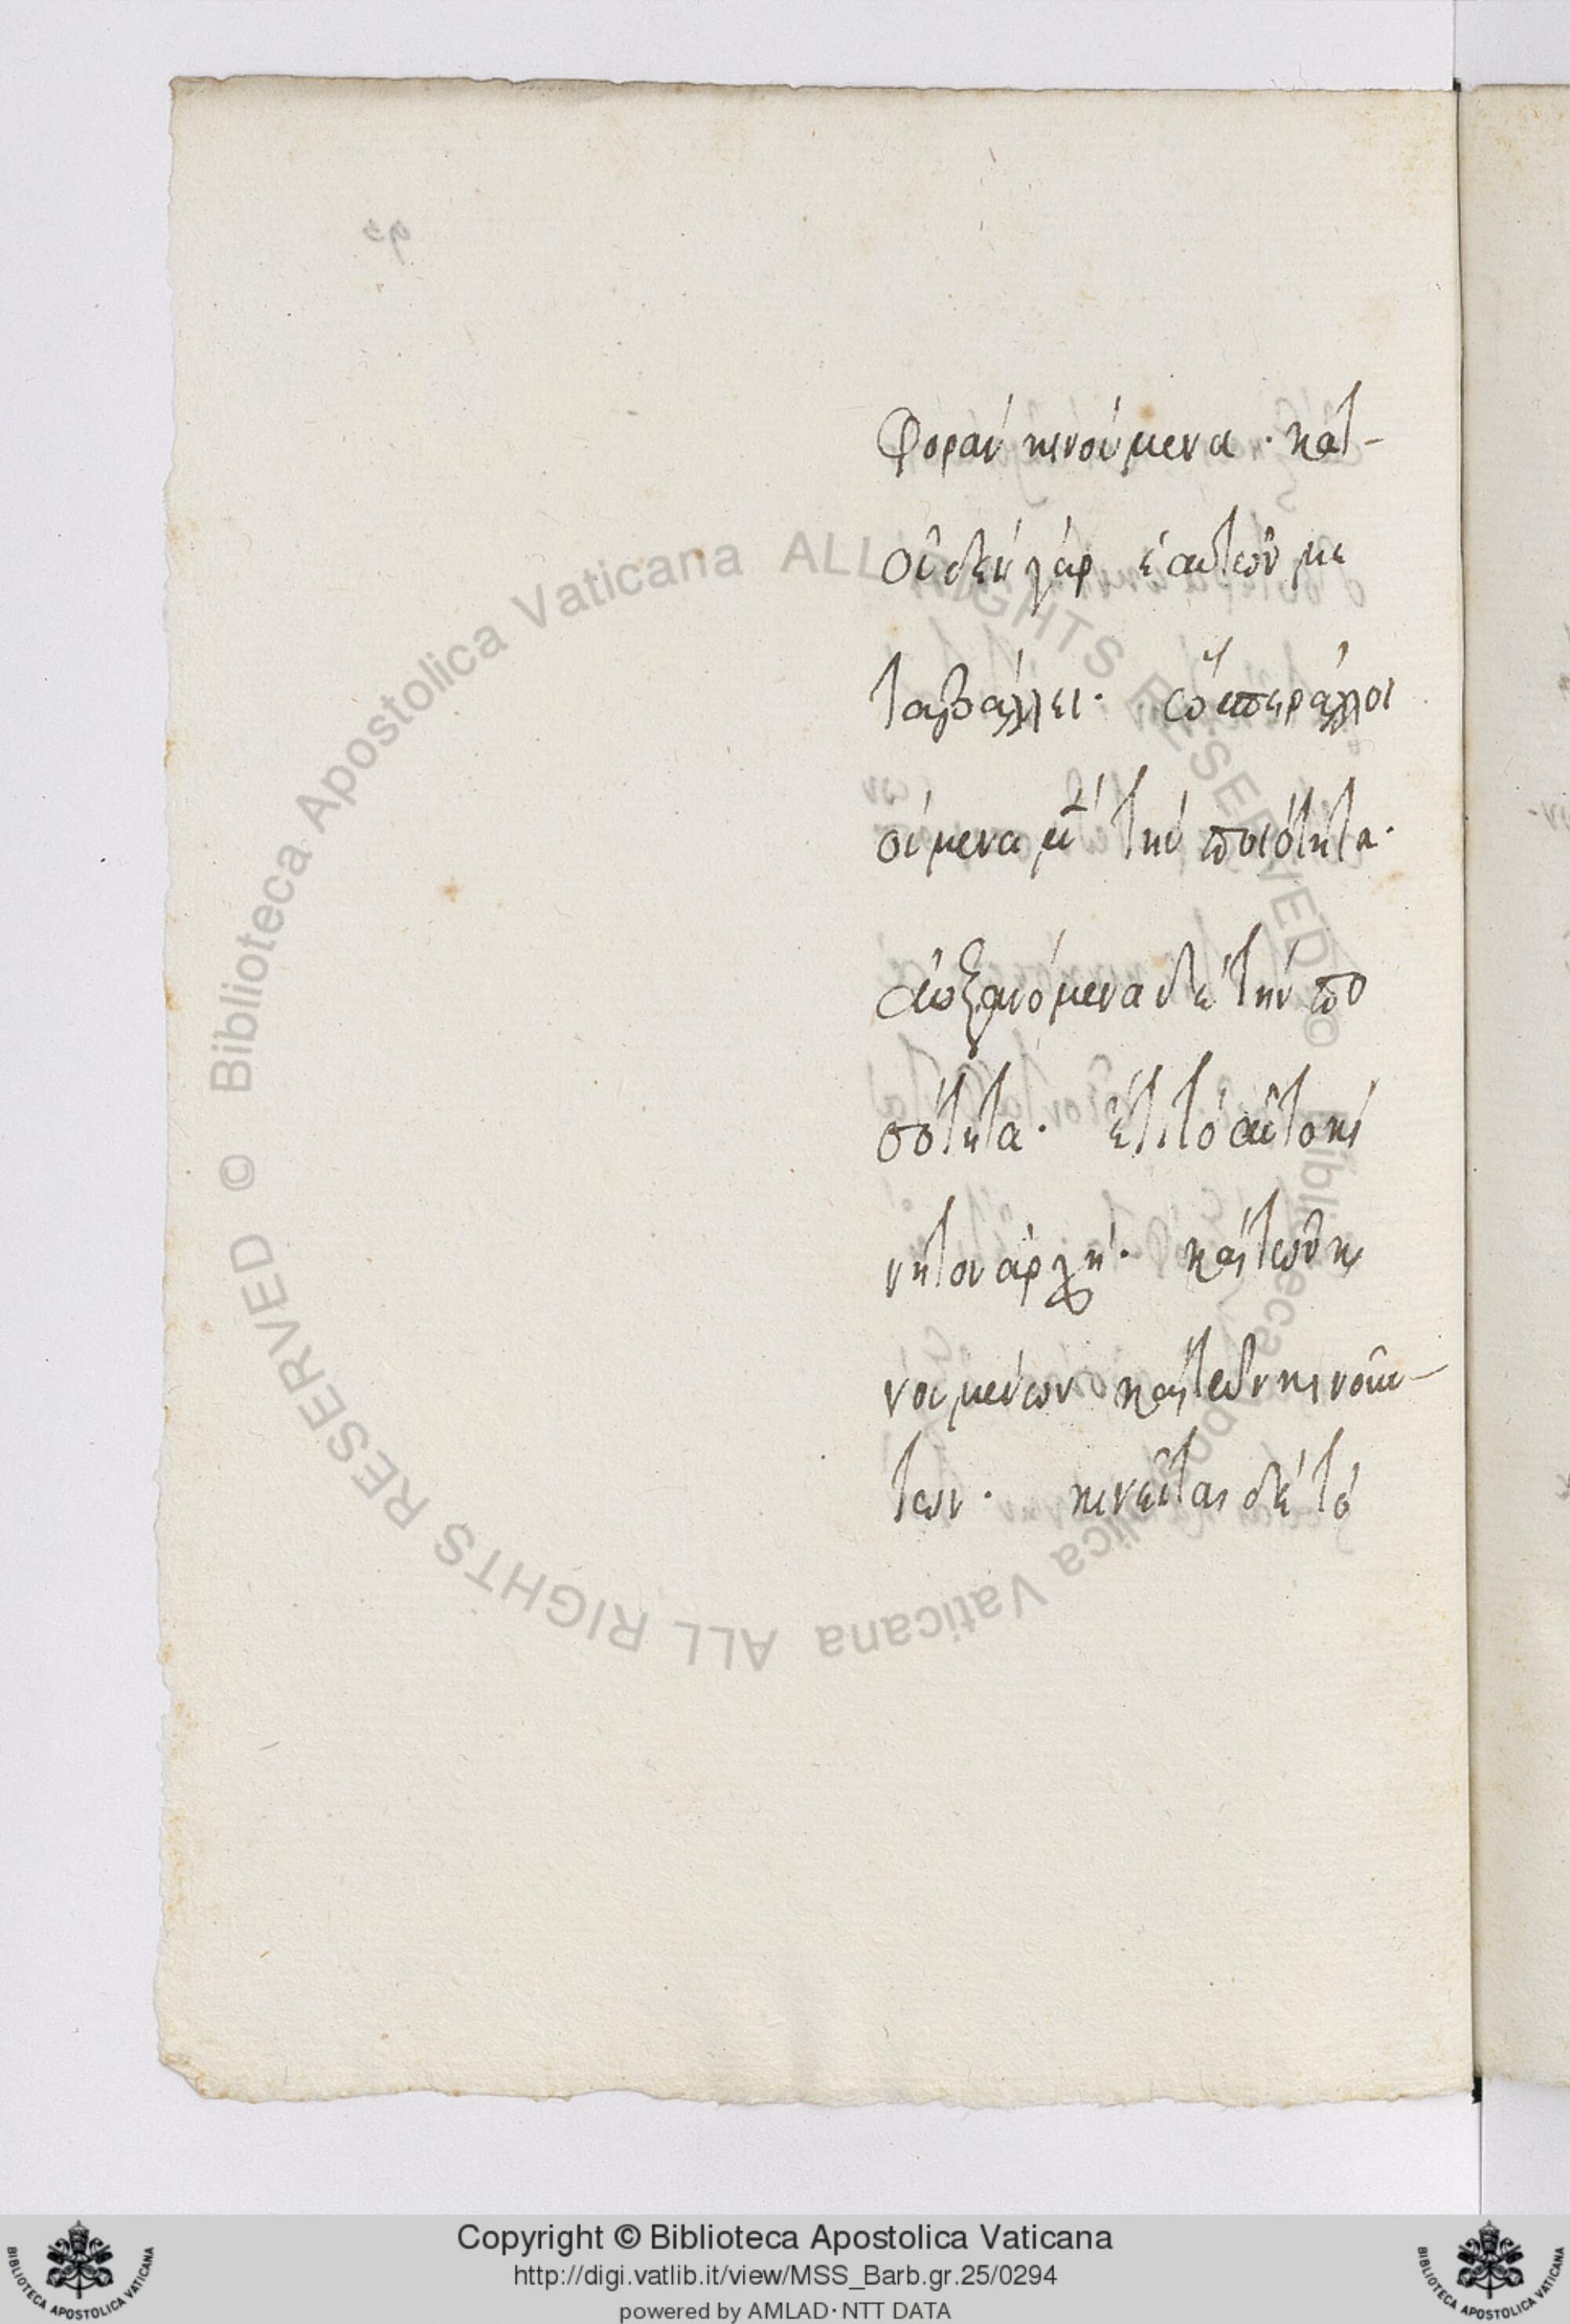 φοραν κινούμενα · κατ-
οὐδεν γαρ ἑαυτῶν με
ταβάλλει · ὥσπερ αλλοι
ούμενα μὲν την ποιότητα·
αὐξανόμενα δὲ την πο
σότητα · ἔτι τὸ αὐτοκί
νητον ἀρχή · καὶ τῶν κι
νουμένων καὶ τῶν κινούν-
των · κινεῖται δὲ τὸ
© Biblioteca Apostolica Vaticana ALL RIGHTS RESERVED © Biblioteca Apostolica Vaticana ALL RIGHTS RESERVED
Copyright © Biblioteca Apostolica Vaticana
http://digi.vatlib.it/view/MSS_Barb.gr.25/0294
powered by AMLAD·NTT DATA
BIBLIOTECA APOSTOLICA VATICANA
BIBLIOTECA APOSTOLICA VATICANA